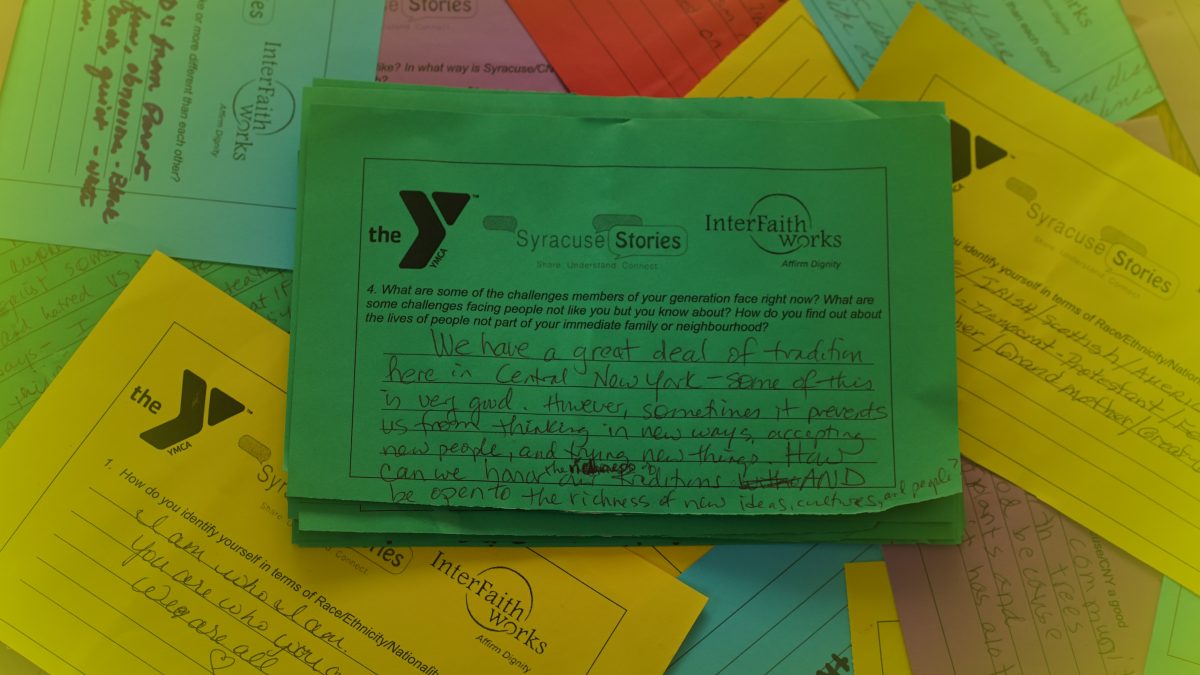 Stories
Share. Understand. Connect.
or more different than each other?
InterFaith
works
Affirm Dignity
from
quiet
like? In what way is Syracuse/CN
than each other?
works
the
YMCA
Syracuse Stories
Share. Understand. Connect.
InterFaith
works
Affirm Dignity
4. What are some of the challenges members of your generation face right now? What are
some challenges facing people not like you but you know about? How do you find out about
the lives of people not part of your immediate family or neighbourhood?
We have a great deal of tradition
here in Central New York - some of this
is very good. However, sometimes it prevents
us from thinking in new ways, accepting
new people, and trying new things. How
can we honor the richness in our traditions AND
be open to the richness of new ideas, cultures, and people?
Syracuse
Stories
Share. Understand. Connect.
ou identify yourself in terms of Race/Ethnicity/Nation
Irish/Scottish/
Democrat-Protestant/
/Grandmother/
the
YMCA
1. How do you identify yourself in terms of Race/Ethnicity/Nationalit
I am who I am
you are who you
We are all
Stories
Connect.
InterFaith
works
Affirm Dignity
/CNY a good
trees
because